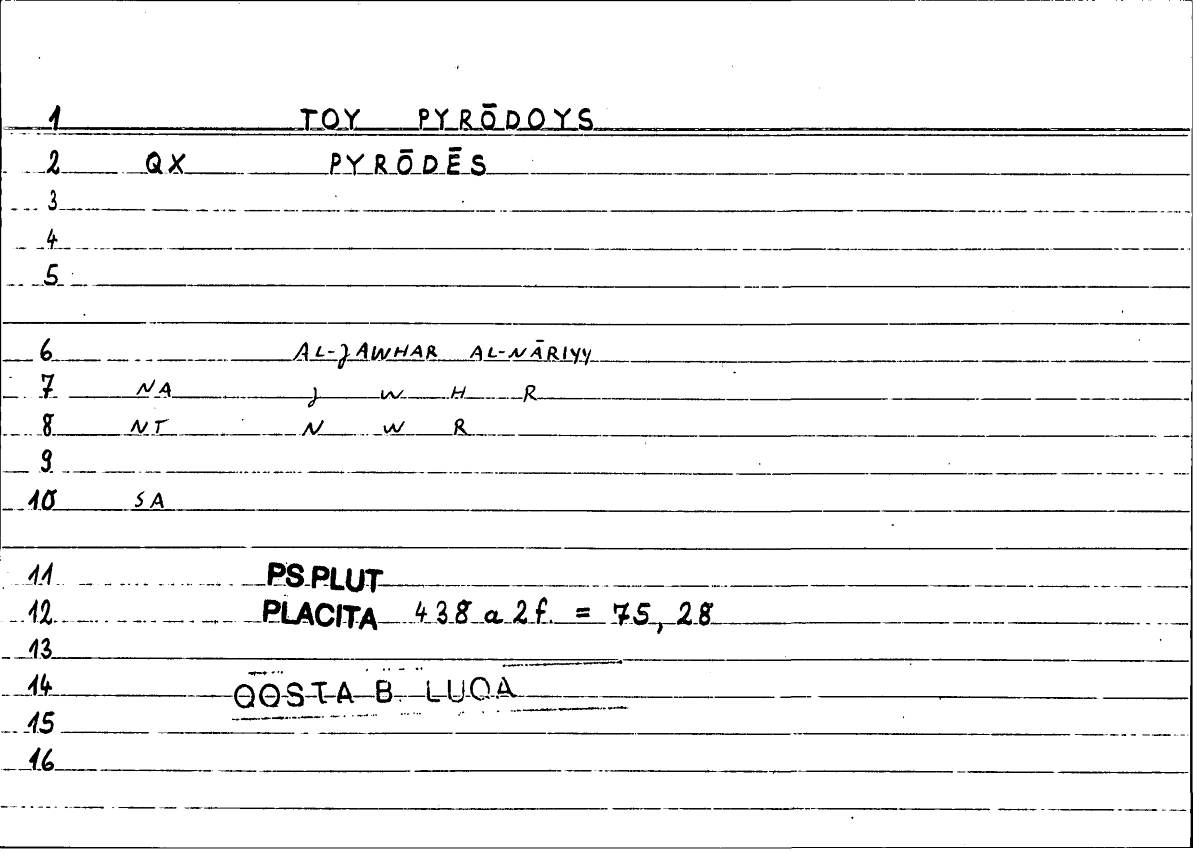 1 TOY PYRŌDOYS
2 QX PYRŌDĒS
3
4
5
6 AL-JAWHAR AL-NĀRIYY
7 NA J W H R
8 NT N W R
9
10 SA
11 PS.PLUT
12 PLACITA 438 a 2 f. = 75, 28
13
14 QOSTA B. LUQA
15
16